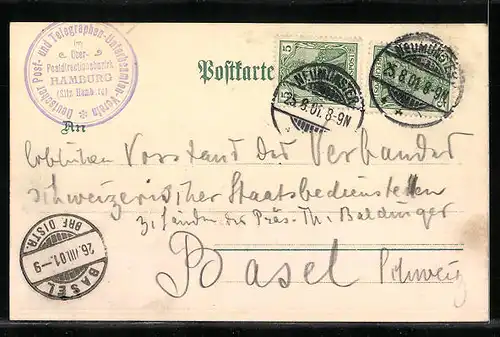 Deutscher Post- und Telegraphen-Unterbeamten-Verein
im
Ober-
Postdirectionsbezirk
HAMBURG
Postkarte
5
NEUMÜNSTER
25.8.01. 8-9N
NEUMÜNSTER
25.8.01. 8-9N
An
löblichen Vorstand des Verbandes
schweizerischer Staatsbediensteten
z. Händen des Präs. Th. Baldinger
Basel
Schweiz
BRF. DISTR.
26.VIII.01.-9
BASEL